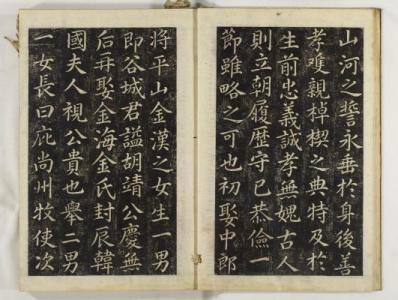 山河之誓永垂於身後善
孝雙親棹楔之典特及於
生前忠義誠孝無愧古人
則立朝履歴守己恭儉一
節雖略之可也初娶中郎
将平山金漢之女生一男
即谷城君謚胡靖公慶無
后再娶金海金氏封辰韓
國夫人視公貴也舉二男
一女長曰庇尚州牧使次